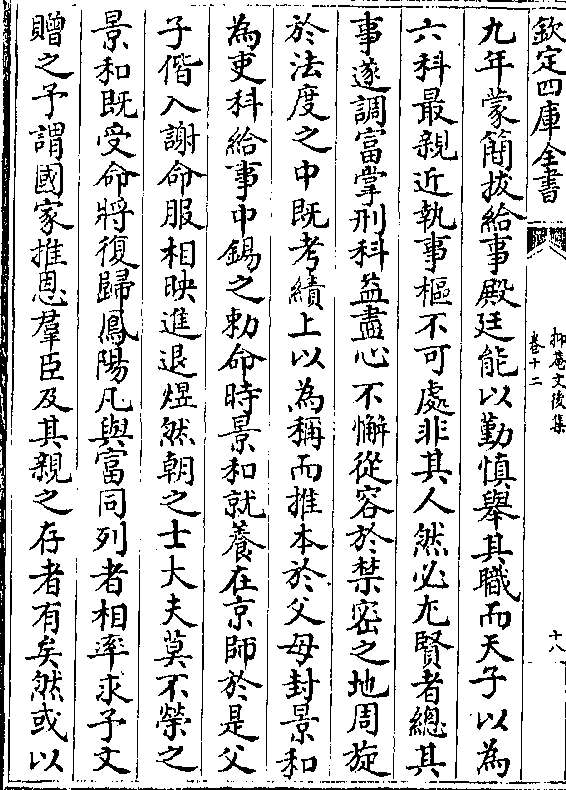 欽定四庫全書
抑菴文後集
卷十二
十八
九年蒙簡拔給事殿廷能以勤慎舉其職而天子以為
六科最親近執事樞不可處非其人然必尤賢者總其
事遂調富掌刑科益盡心不懈從容於禁密之地周旋
於法度之中既考績上以為稱而推本於父母封景和
為吏科給事中錫之勅命時景和就養在京師於是父
子偕入謝命服相映進退煜然朝之士大夫莫不榮之
景和既受命將復歸鳳陽凡與富同列者相率求予文
贈之予謂國家推恩羣臣及其親之存者有矣然或以